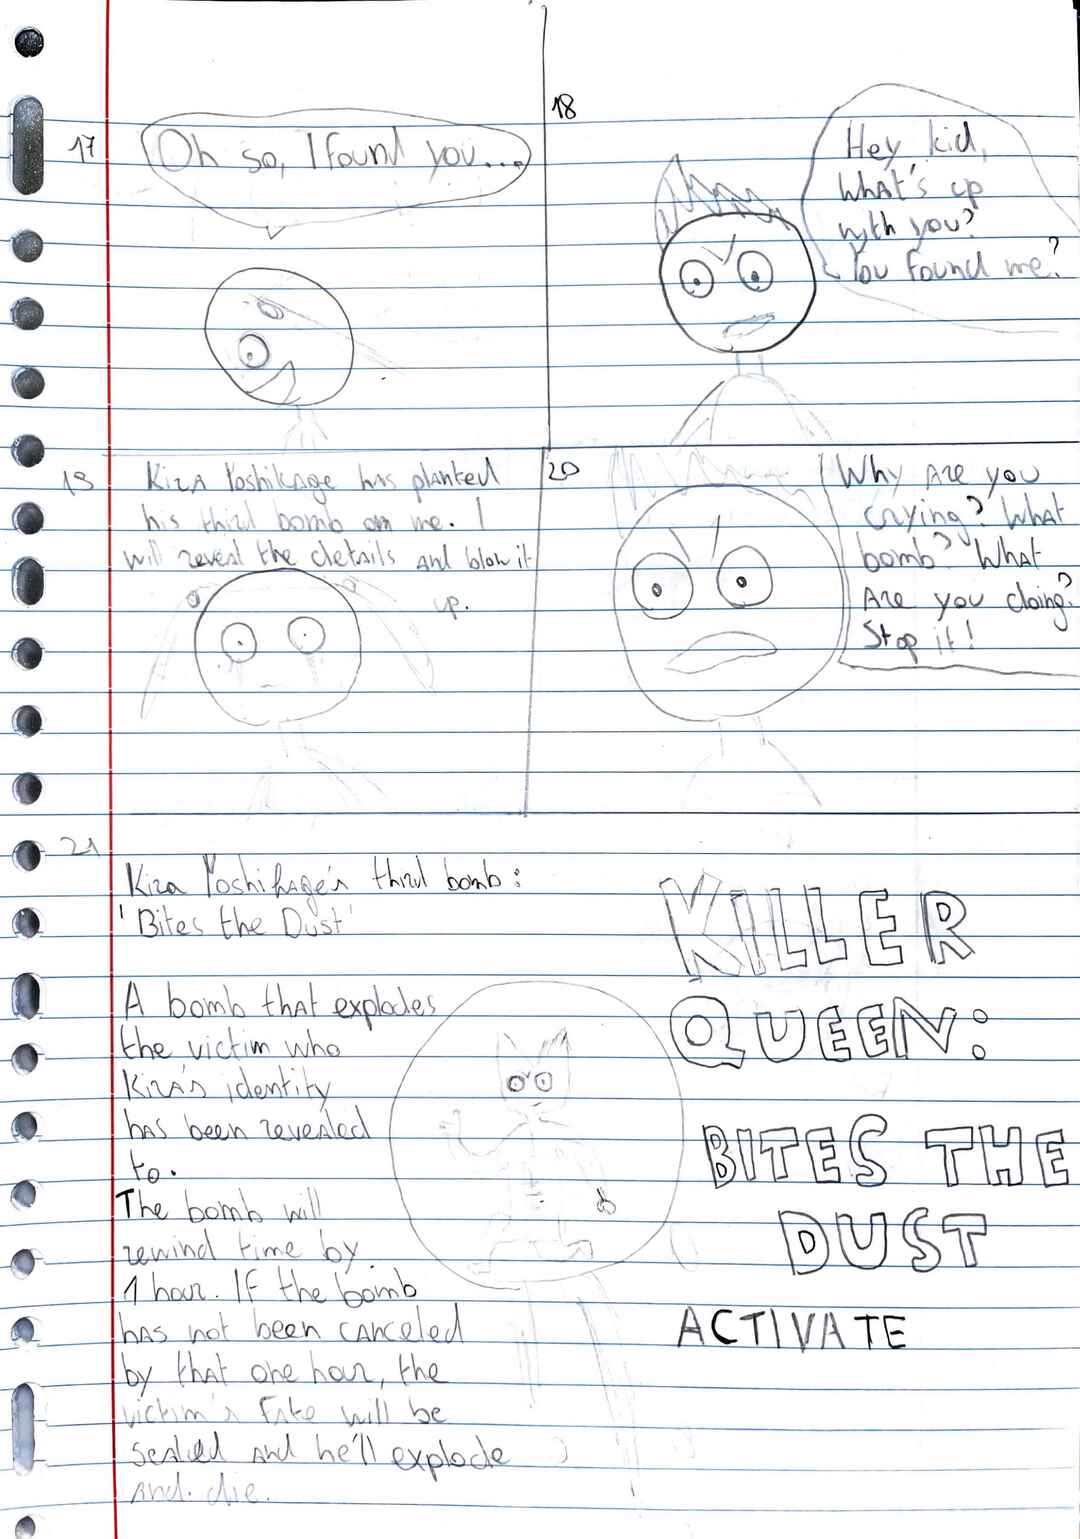 17
Oh so, I found you...
18
Hey kid,
what's up
with you?
You found me?
19
Kira Yoshikage has planted
his third bomb on me. I
will reveal the details and blow it
up.
20
Why are you
crying? What
bomb? What
are you doing?
Stop it!
21
Kira Yoshikage's third bomb:
'Bites the Dust'
A bomb that explodes
the victim who
Kira's identity
has been revealed
to.
The bomb will
rewind time by
1 hour. If the bomb
has not been canceled
by that one hour, the
victim's fate will be
sealed and he'll explode
and die.
KILLER
QUEEN:
BITES THE
DUST
ACTIVATE